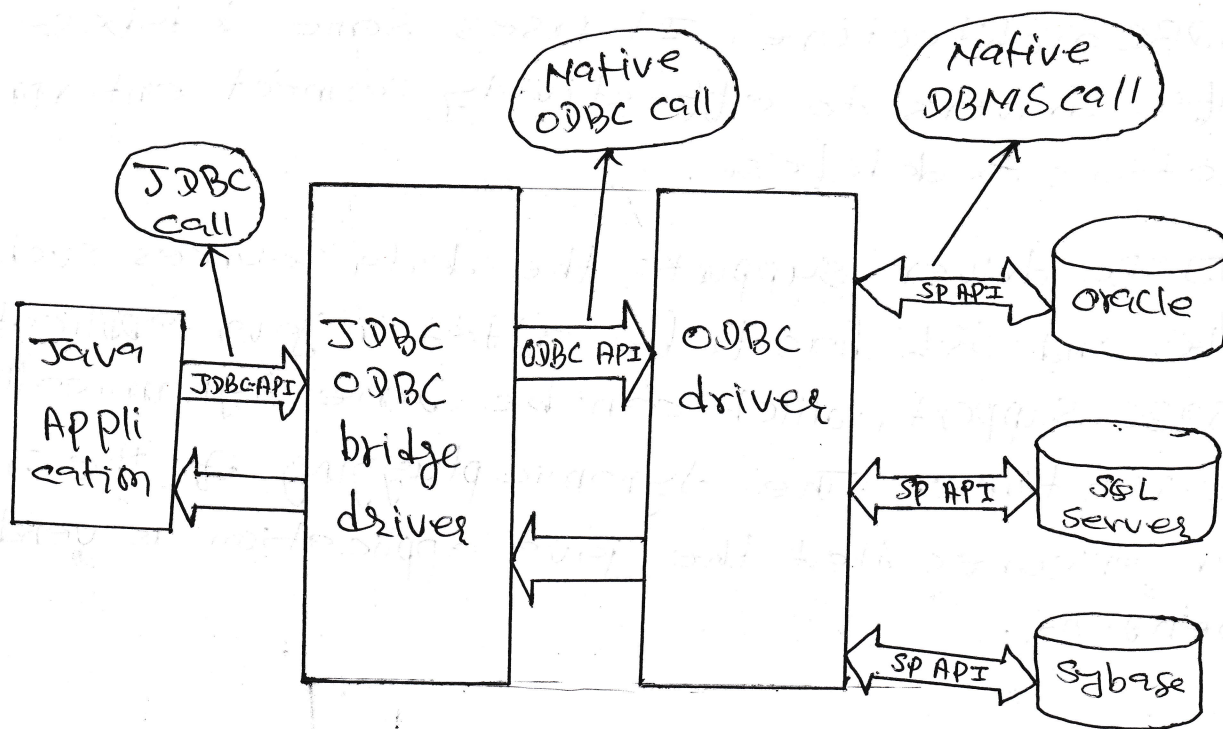 Native
ODBC call
Native
DBMS call
JDBC
call
Java
Appli
cation
JDBC API
JDBC
ODBC
bridge
driver
ODBC API
ODBC
driver
SP API
oracle
SP API
SQL
server
SP API
Sybase